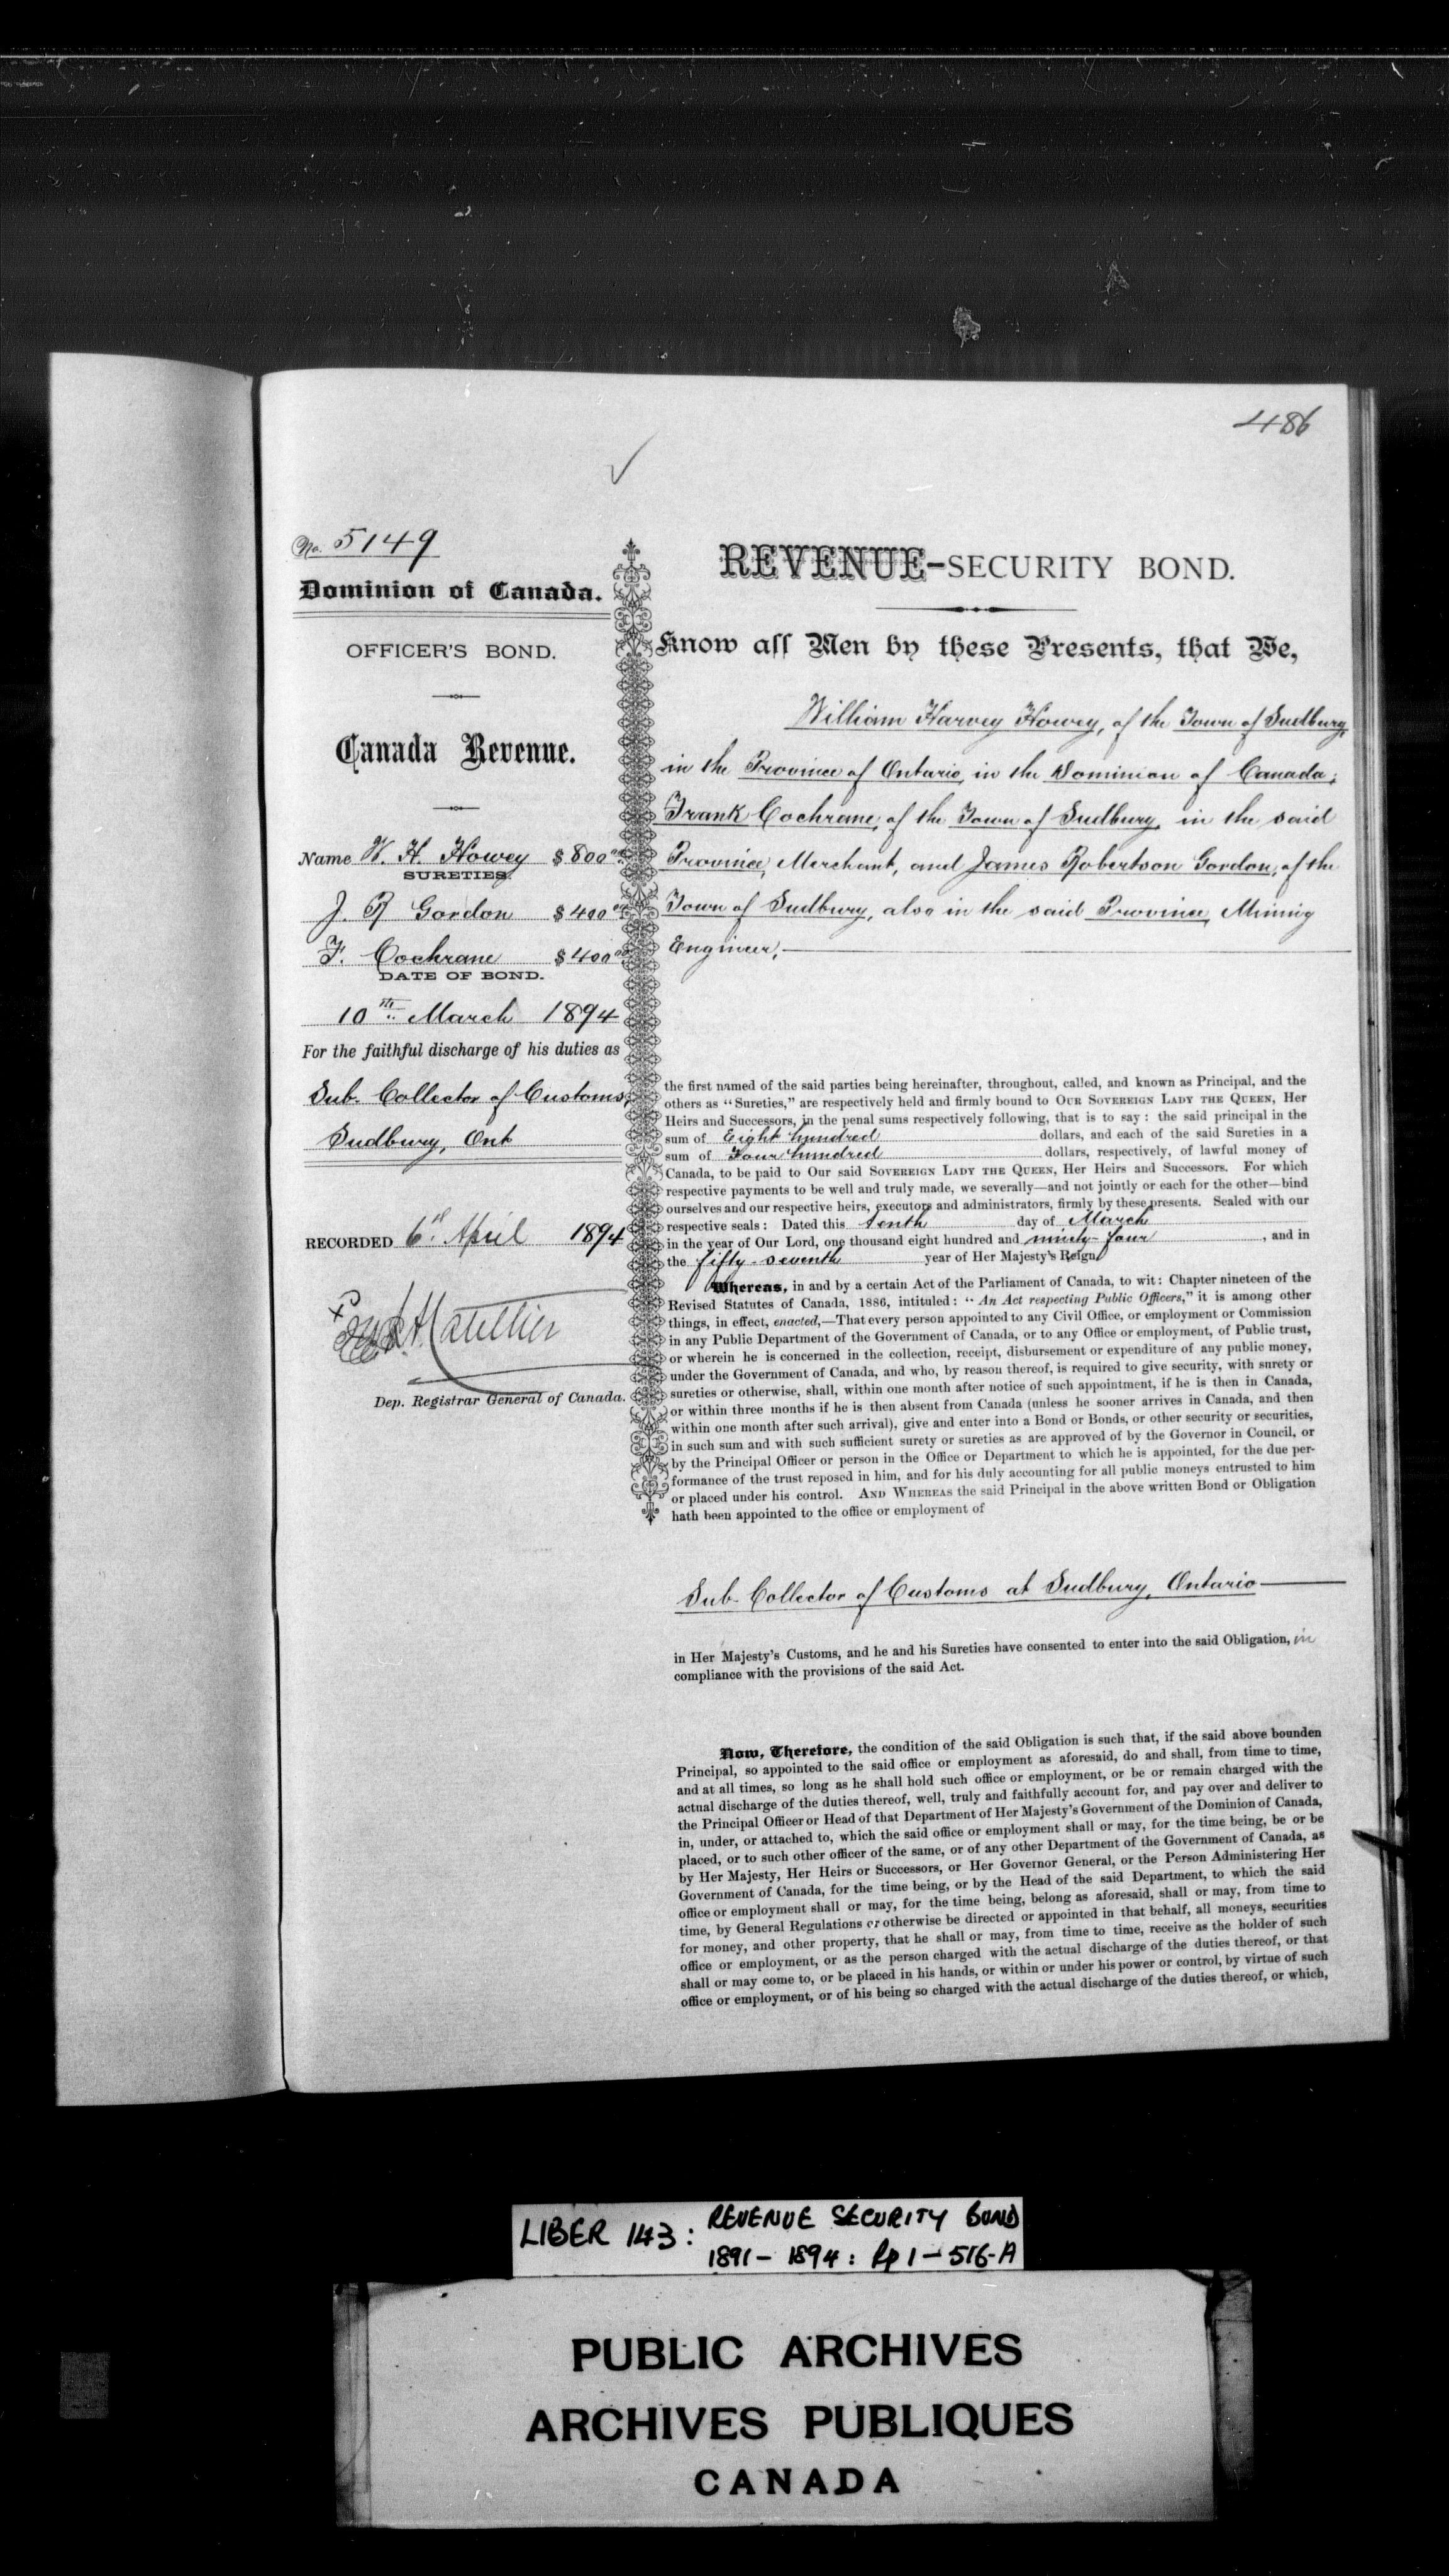 486
No. 5149
Dominion of Canada.
OFFICER'S BOND.
Canada Revenue.
Name W. H. Howey $800 00
SURETIES.
J. R Gordon $400 00
F. Cochrane $400 00
DATE OF BOND.
10th March 1894
For the faithful discharge of his duties as
Sub. Collector of Customs,
Sudbury, Ont
RECORDED 6th April 1894
Dep. Registrar General of Canada.
REVENUE-SECURITY BOND.
Know all Men by these Presents, that We,
William Harvey Howey, of the Town of Sudbury,
in the Province of Ontario, in the Dominion of Canada;
Frank Cochrane, of the Town of Sudbury, in the said
Province, Merchant, and James Robertson Gordon, of the
Town of Sudbury, also in the said Province, Mining
Engineer,
the first named of the said parties being hereinafter, throughout, called, and known as Principal, and the
others as "Sureties," are respectively held and firmly bound to OUR SOVEREIGN LADY THE QUEEN, Her
Heirs and Successors, in the penal sums respectively following, that is to say : the said principal in the
sum of Eight hundred dollars, and each of the said Sureties in a
sum of Four hundred dollars, respectively, of lawful money of
Canada, to be paid to Our said SOVEREIGN LADY THE QUEEN, Her Heirs and Successors. For which
respective payments to be well and truly made, we severally—and not jointly or each for the other—bind
ourselves and our respective heirs, executors and administrators, firmly by these presents. Sealed with our
respective seals : Dated this tenth day of March
in the year of Our Lord, one thousand eight hundred and ninety-four, and in
the fifty-seventh year of Her Majesty's Reign.
Whereas, in and by a certain Act of the Parliament of Canada, to wit: Chapter nineteen of the
Revised Statutes of Canada, 1886, intituled: "An Act respecting Public Officers," it is among other
things, in effect, enacted,—That every person appointed to any Civil Office, or employment or Commission
in any Public Department of the Government of Canada, or to any Office or employment, of Public trust,
or wherein he is concerned in the collection, receipt, disbursement or expenditure of any public money,
under the Government of Canada, and who, by reason thereof, is required to give security, with surety or
sureties or otherwise, shall, within one month after notice of such appointment, if he is then in Canada,
or within three months if he is then absent from Canada (unless he sooner arrives in Canada, and then
within one month after such arrival), give and enter into a Bond or Bonds, or other security or securities,
in such sum and with such sufficient surety or sureties as are approved of by the Governor in Council, or
by the Principal Officer or person in the Office or Department to which he is appointed, for the due per-
formance of the trust reposed in him, and for his duly accounting for all public moneys entrusted to him
or placed under his control. AND WHEREAS the said Principal in the above written Bond or Obligation
hath been appointed to the office or employment of
Sub-Collector of Customs at Sudbury, Ontario
in Her Majesty's Customs, and he and his Sureties have consented to enter into the said Obligation, in
compliance with the provisions of the said Act.
Now, Therefore, the condition of the said Obligation is such that, if the said above bounden
Principal, so appointed to the said office or employment as aforesaid, do and shall, from time to time,
and at all times, so long as he shall hold such office or employment, or be or remain charged with the
actual discharge of the duties thereof, well, truly and faithfully account for, and pay over and deliver to
the Principal Officer or Head of that Department of Her Majesty's Government of the Dominion of Canada,
in, under, or attached to, which the said office or employment shall or may, for the time being, be or be
placed, or to such other officer of the same, or of any other Department of the Government of Canada, as
by Her Majesty, Her Heirs or Successors, or Her Governor General, or the Person Administering Her
Government of Canada, for the time being, or by the Head of the said Department, to which the said
office or employment shall or may, for the time being, belong as aforesaid, shall or may, from time to
time, by General Regulations or otherwise be directed or appointed in that behalf, all moneys, securities
for money, and other property, that he shall or may, from time to time, receive as the holder of such
office or employment, or as the person charged with the actual discharge of the duties thereof, or that
shall or may come to, or be placed in his hands, or within or under his power or control, by virtue of such
office or employment, or of his being so charged with the actual discharge of the duties thereof, or which,
LIBER 143: REVENUE SECURITY BOND
1891-1894: Pp 1-516-A
PUBLIC ARCHIVES
ARCHIVES PUBLIQUES
CANADA